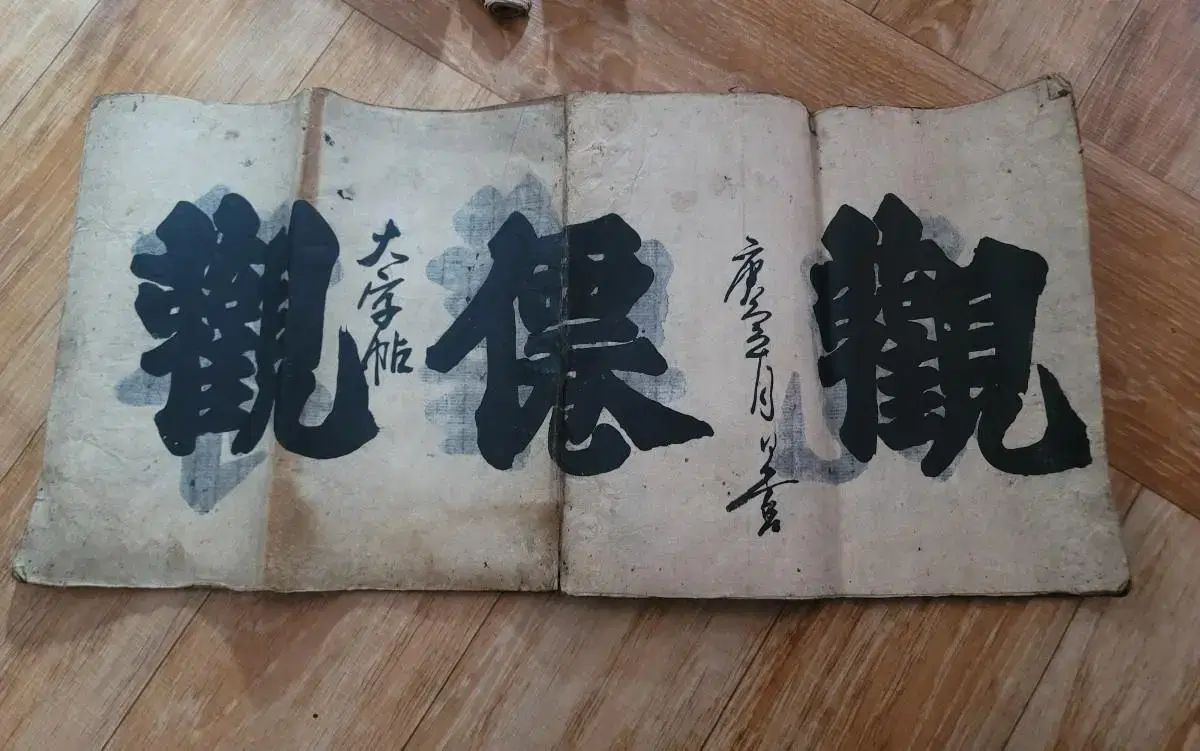 觀
庚月日書
大字帖
觀